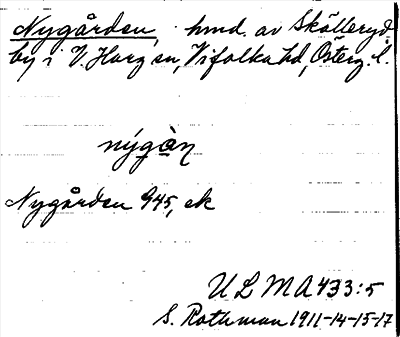 Nygården, hmd. av Skölleryd
by i V. Harg sn, Vifolka hd, Österg. l.
nýgàn
Nygården 945, ek
ULMA 433:5
S. Rothman 1911-14-15-17